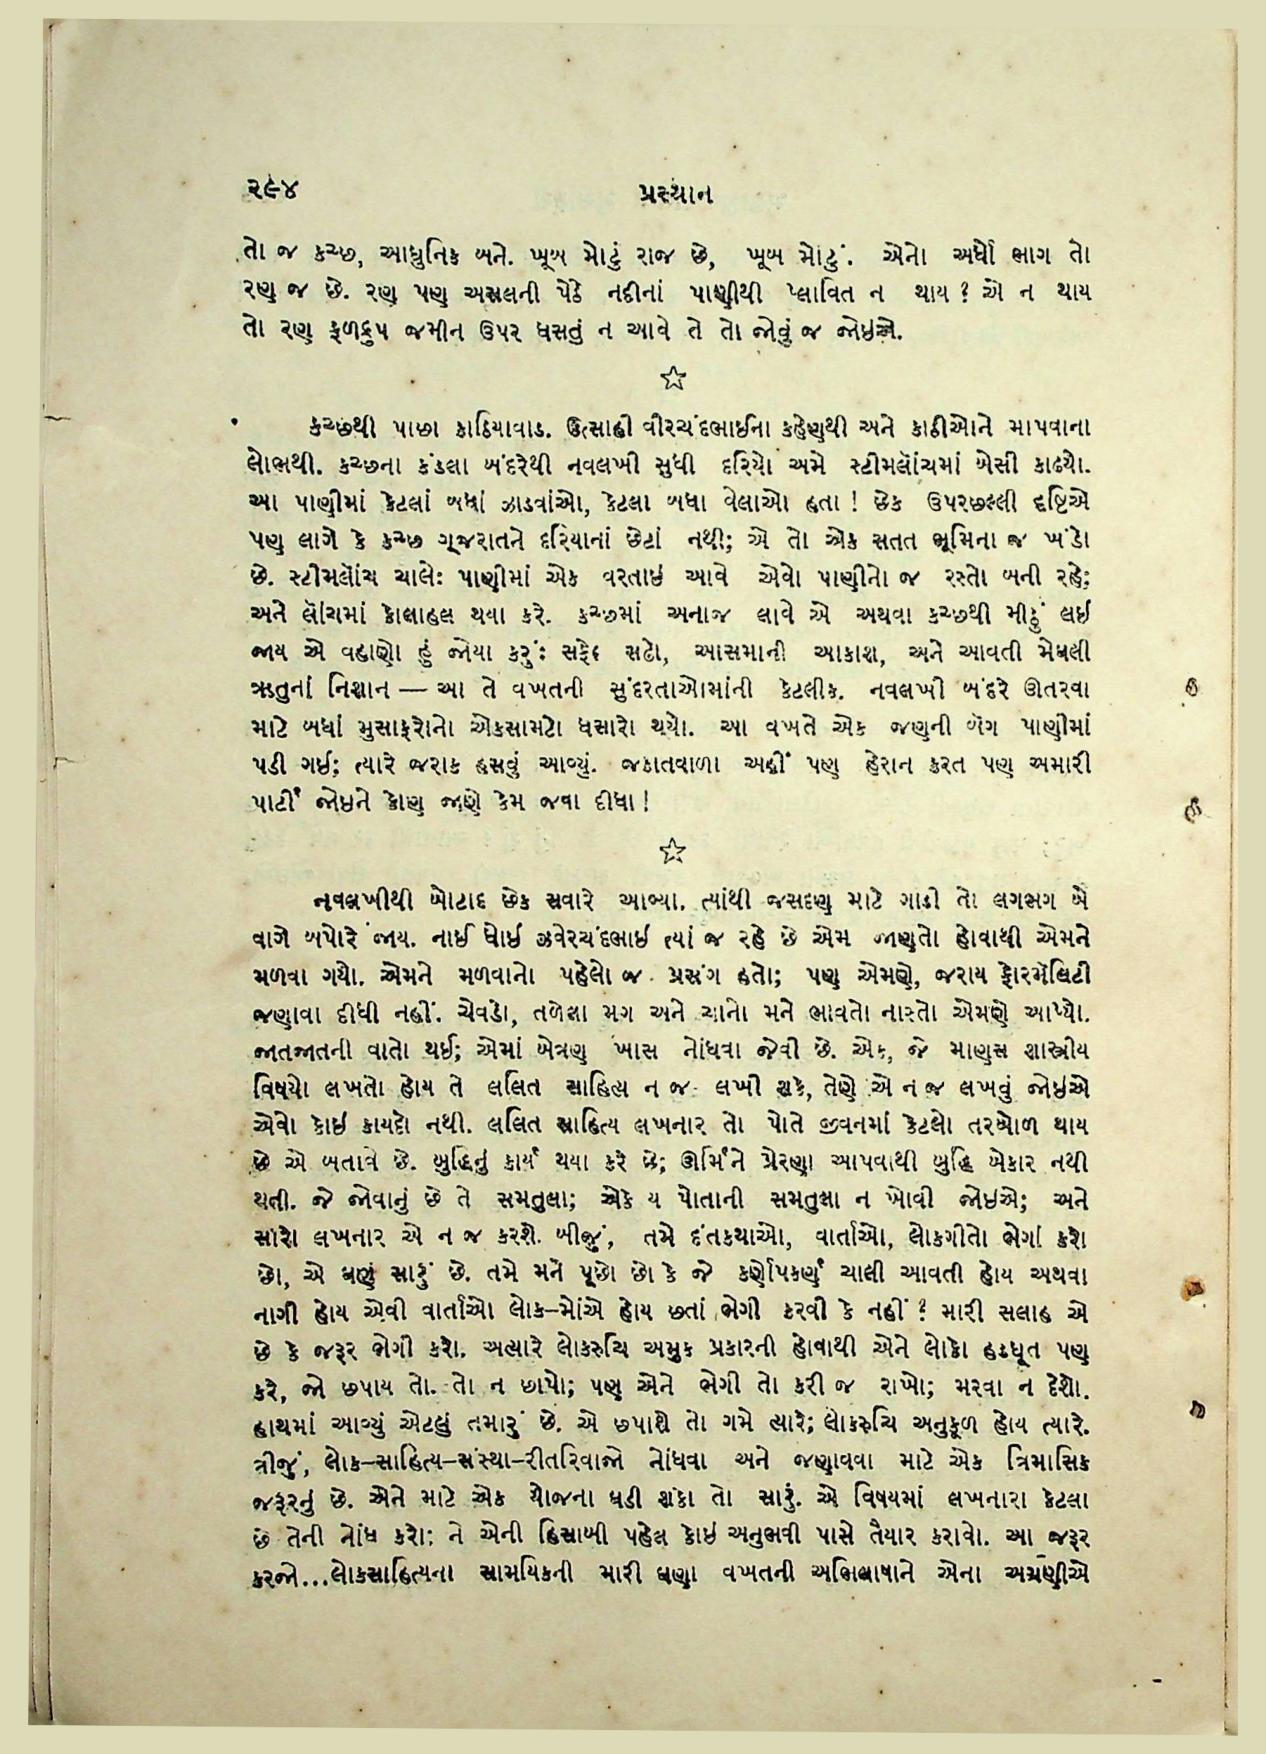 ૨૯૪
પ્રસ્થાન
તો જ કચ્છ, આધુનિક બને. ખૂબ મોટું રાજ છે, ખૂબ મોટું. એનો અર્ધો ભાગ તો
રણ જ છે. રણ પણ અસલની પેઠે નદીનાં પાણીથી પ્લાવિત ન થાય? એ ન થાય
તો રણ ફળદ્રુપ જમીન ઉપર ધસતું ન આવે તે તો જોવું જ જોઇએ.
☆
કચ્છથી પાછા કાઠિયાવાડ. ઉત્સાહી વીરચંદભાઈના કહેણુથી અને કાઠીઓને માપવાના
લોભથી. કચ્છના કંડલા બંદરેથી નવલખી સુધી દરિયો અમે સ્ટીમલૉંચમાં બેસી કાઢ્યો.
આ પાણીમાં કેટલાં બધાં ઝાડવાંઓ, કેટલા બધા વેલાઓ હતા! છેક ઉપરછલ્લી દૃષ્ટિએ
પણ લાગે કે કચ્છ ગૂજરાતને દરિયાનાં છેટાં નથી; એ તો એક સતત ભૂમિના જ ખંડો
છે. સ્ટીમલૉંચ ચાલે: પાણીમાં એક વરતાઇ આવે એવો પાણીનો જ રસ્તો બની રહે;
અને લૉંચમાં કોલાહલ થયા કરે. કચ્છમાં અનાજ લાવે એ અથવા કચ્છથી મીઠું લઇ
જાય એ વહાણો હું જોયા કરું: સફેદ સઢો, આસમાની આકાશ, અને આવતી મેઘલી
ઋતુનાં નિશાન — આ તે વખતની સુંદરતાઓમાંની કેટલીક. નવલખી બંદરે ઊતરવા
માટે બધાં મુસાફરોનો એકસામટો ધસારો થયો. આ વખતે એક જણની બૅગ પાણીમાં
પડી ગઇ; ત્યારે જરાક હસવું આવ્યું. જકાતવાળા અહીં પણ હેરાન કરત પણ અમારી
પાર્ટી જોઇને કોણ જાણે કેમ જવા દીધા!
☆
નવલખીથી બોટાદ છેક સવારે આવ્યા. ત્યાંથી જસદણ માટે ગાડી તો લગભગ બે
વાગે બપોરે જાય. નાઈ ધોઈ ઝવેરચંદભાઇ ત્યાં જ રહે છે એમ જાણતો હોવાથી એમને
મળવા ગયો. એમને મળવાનો પહેલો જ પ્રસંગ હતો; પણ એમણે, જરાય ફૉરમૅલિટી
જણાવા દીધી નહીં. ચેવડો, તળેલા મગ અને ચાનો મને ભાવતો નાસ્તો એમણે આપ્યો.
જાતજાતની વાતો થઇ; એમાં બેત્રણ ખાસ નોંધવા જેવી છે. એક, જે માણસ શાસ્ત્રીય
વિષયો લખતો હોય તે લલિત સાહિત્ય ન જ લખી શકે, તેણે એ ન જ લખવું જોઇએ
એવો કોઇ કાયદો નથી. લલિત સાહિત્ય લખનાર તો પોતે જીવનમાં કેટલો તરબોળ થાય
છે એ બતાવે છે. બુદ્ધિનું કાર્ય થયા કરે છે; ઊર્મિને પ્રેરણા આપવાથી બુદ્ધિ બેકાર નથી
થતી. જે જોવાનું છે તે સમતુલા; એકે ય પોતાની સમતુલા ન ખોવી જોઇએ; અને
સારો લખનાર એ ન જ કરશે. બીજું, તમે દંતકથાઓ, વાર્તાઓ, લોકગીતો ભેગાં કરો
છો, એ ઘણું સારું છે. તમે મને પૂછો છો કે જે કર્ણોપકર્ણ ચાલી આવતી હોય અથવા
નાગી હોય એવી વાર્તાઓ લોક–મોંએ હોય છતાં ભેગી કરવી કે નહીં? મારી સલાહ એ
છે કે જરૂર ભેગી કરો. અત્યારે લોકરુચિ અમુક પ્રકારની હોવાથી એને લોકો હડધૂત પણ
કરે, જો છપાય તો. તો ન છાપો; પણ એને ભેગી તો કરી જ રાખો; મરવા ન દેશો.
હાથમાં આવ્યું એટલું તમારું છે. એ છપાશે તો ગમે ત્યારે; લોકરુચિ અનુકૂળ હોય ત્યારે.
ત્રીજું, લોક–સાહિત્ય–સંસ્થા–રીતરિવાજો નોંધવા અને જણાવવા માટે એક ત્રિમાસિક
જરૂરનું છે. એને માટે એક યોજના ઘડી શકો તો સારું. એ વિષયમાં લખનારા કેટલા
છે તેની નોંધ કરો; ને એની હિસાબી પહેલ કોઇ અનુભવી પાસે તૈયાર કરાવો. આ જરૂર
કરજો...લોકસાહિત્યના સામયિકની મારી ઘણા વખતની અભિલાષાને એના અગ્રણીએ